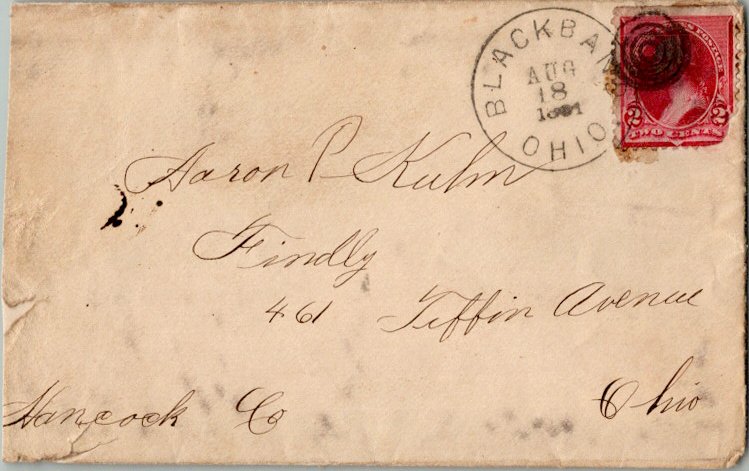 BLACKBAN
AUG
18
1891
OHIO
POSTAGE
2 2
TWO CENTS
Aaron P Kuhn
Findly
461 Tiffin Avenue
Hancock Co Ohio